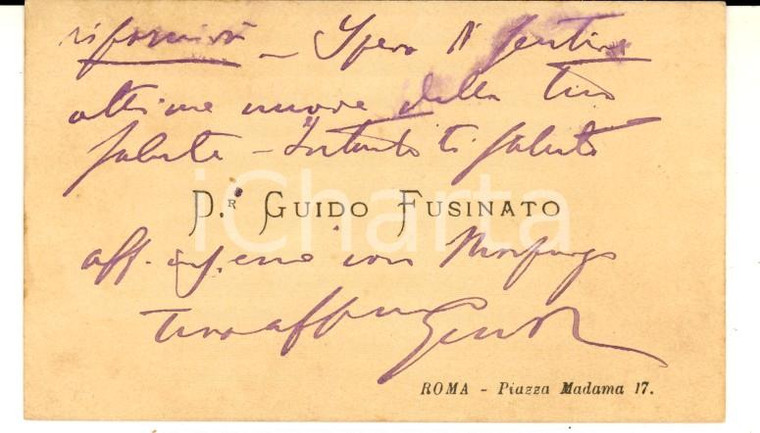 riformirà – Spero di sentire
ottime nuove della tua
salute – Intanto ti saluto
iCharta
D.R GUIDO FUSINATO
aff. con
tuo aff.mo Guido
ROMA - Piazza Madama 17.